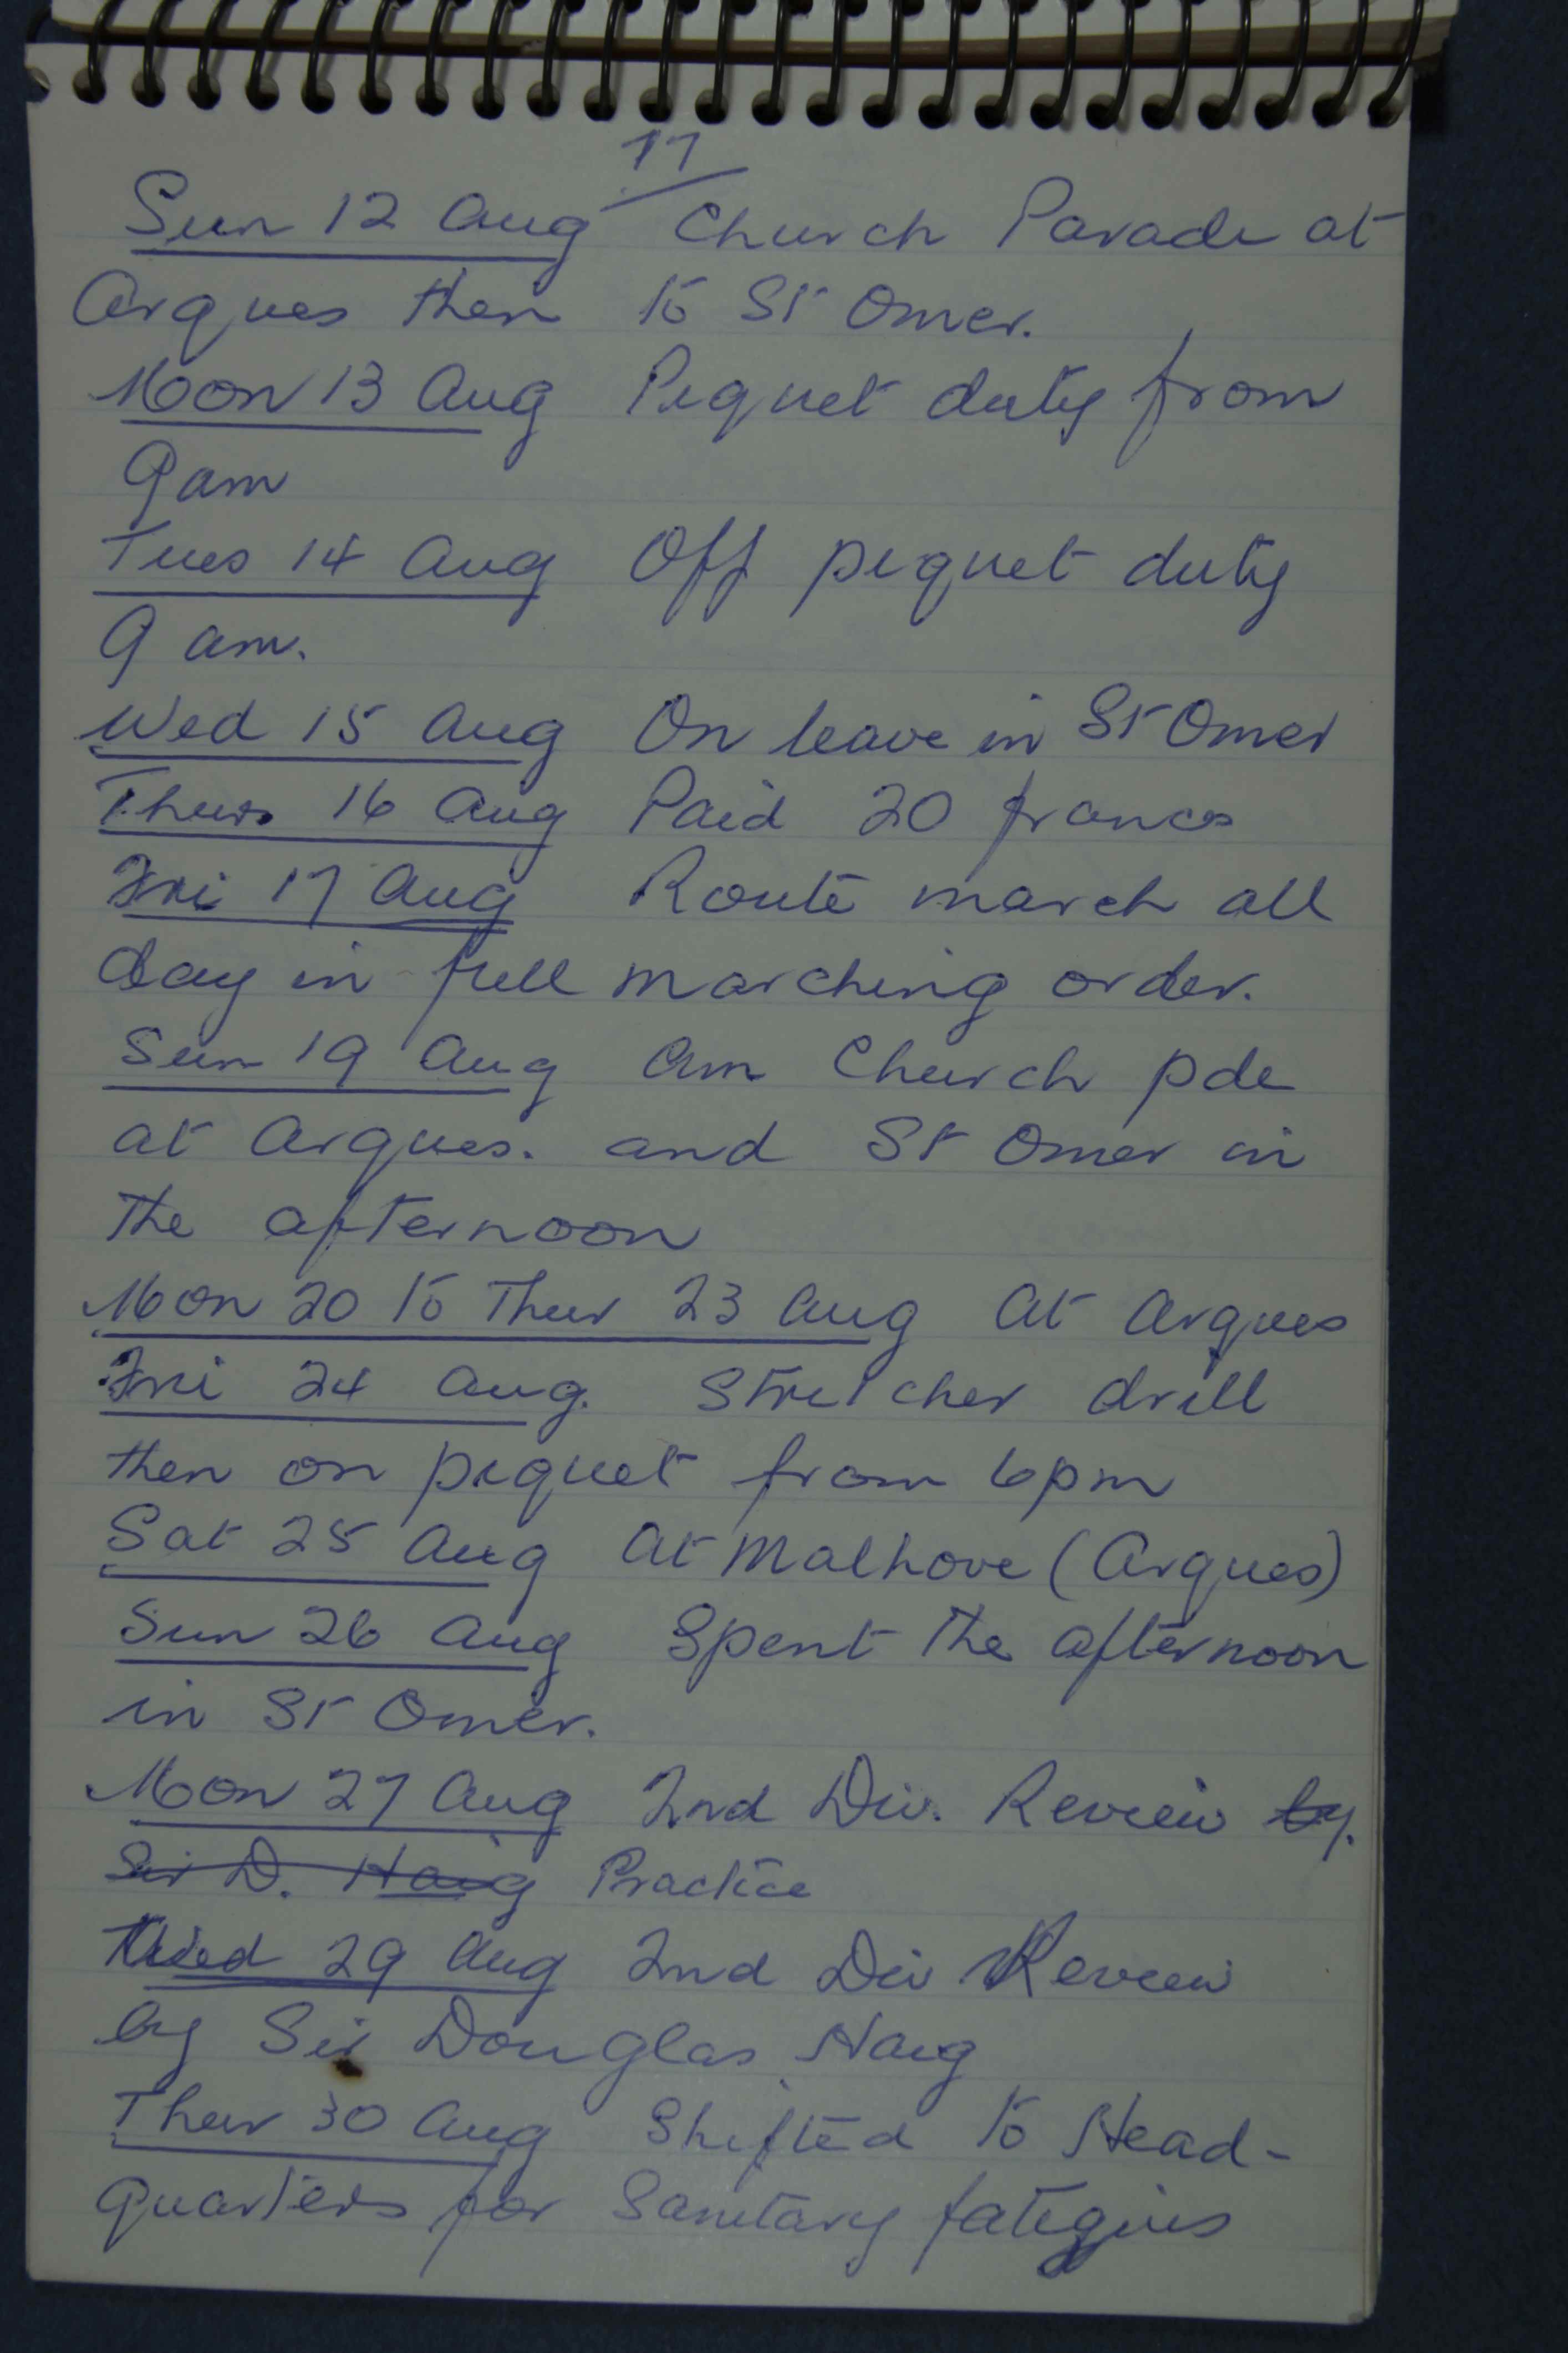 17
Sun 12 Aug Church Parade at
Arques then to St Omer.
Mon 13 Aug Piquet duty from
9am
Tues 14 Aug Off piquet duty
9 am.
Wed 15 Aug On leave in St Omer
Thurs 16 Aug Paid 20 francs
Fri 17 Aug Route march all
day in full marching order.
Sun 19 Aug Am Church pde
at Arques. and St Omer in
the afternoon
Mon 20 to Thur 23 Aug At Arques
Fri 24 Aug. Stretcher drill
then on piquet from 6pm
Sat 25 Aug At Malhove (Arques)
Sun 26 Aug Spent the afternoon
in St Omer.
Mon 27 Aug 2nd Div. Review by.
Sir D. Haig Practice
Wed 29 Aug 2nd Div Review
by Sir Douglas Haig
Thur 30 Aug Shifted to Head-
quarters for Sanitary fatigues